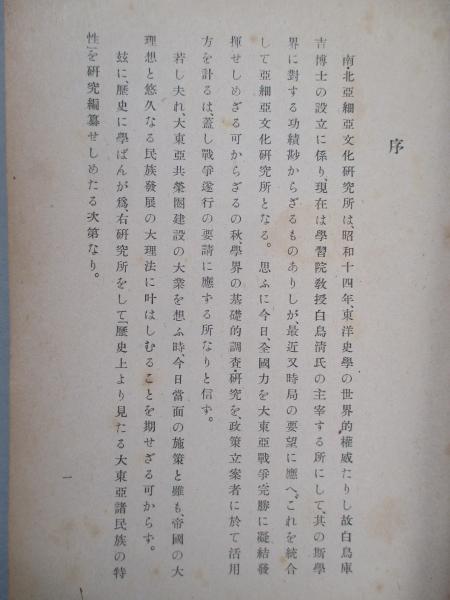 序
南・北亞細亞文化硏究所は、昭和十四年、東洋史學の世界的權威たりし故白鳥庫
吉博士の設立に係り、現在は學習院敎授白鳥淸氏の主宰する所にして、其の斯學
界に對する功績尠からざるものありしが、最近又時局の要望に應へ、これを統合
して亞細亞文化硏究所となる。思ふに今日、全國力を大東亞戰爭完勝に凝結發
揮せしめざる可からざるの秋、學界の基礎的調査・硏究を、政策立案者に於て活用
方を計るは、蓋し戰爭遂行の要請に應ずる所なりと信ず。
若し夫れ、大東亞共榮圈建設の大業を想ふ時、今日當面の施策と雖も、帝國の大
理想と悠久なる民族發展の大理法に叶はしむることを期せざる可からず。
玆に、歷史に學ばんが爲、右硏究所をして「歷史上より見たる大東亞諸民族の特
性」を硏究編纂せしめたる次第なり。
一